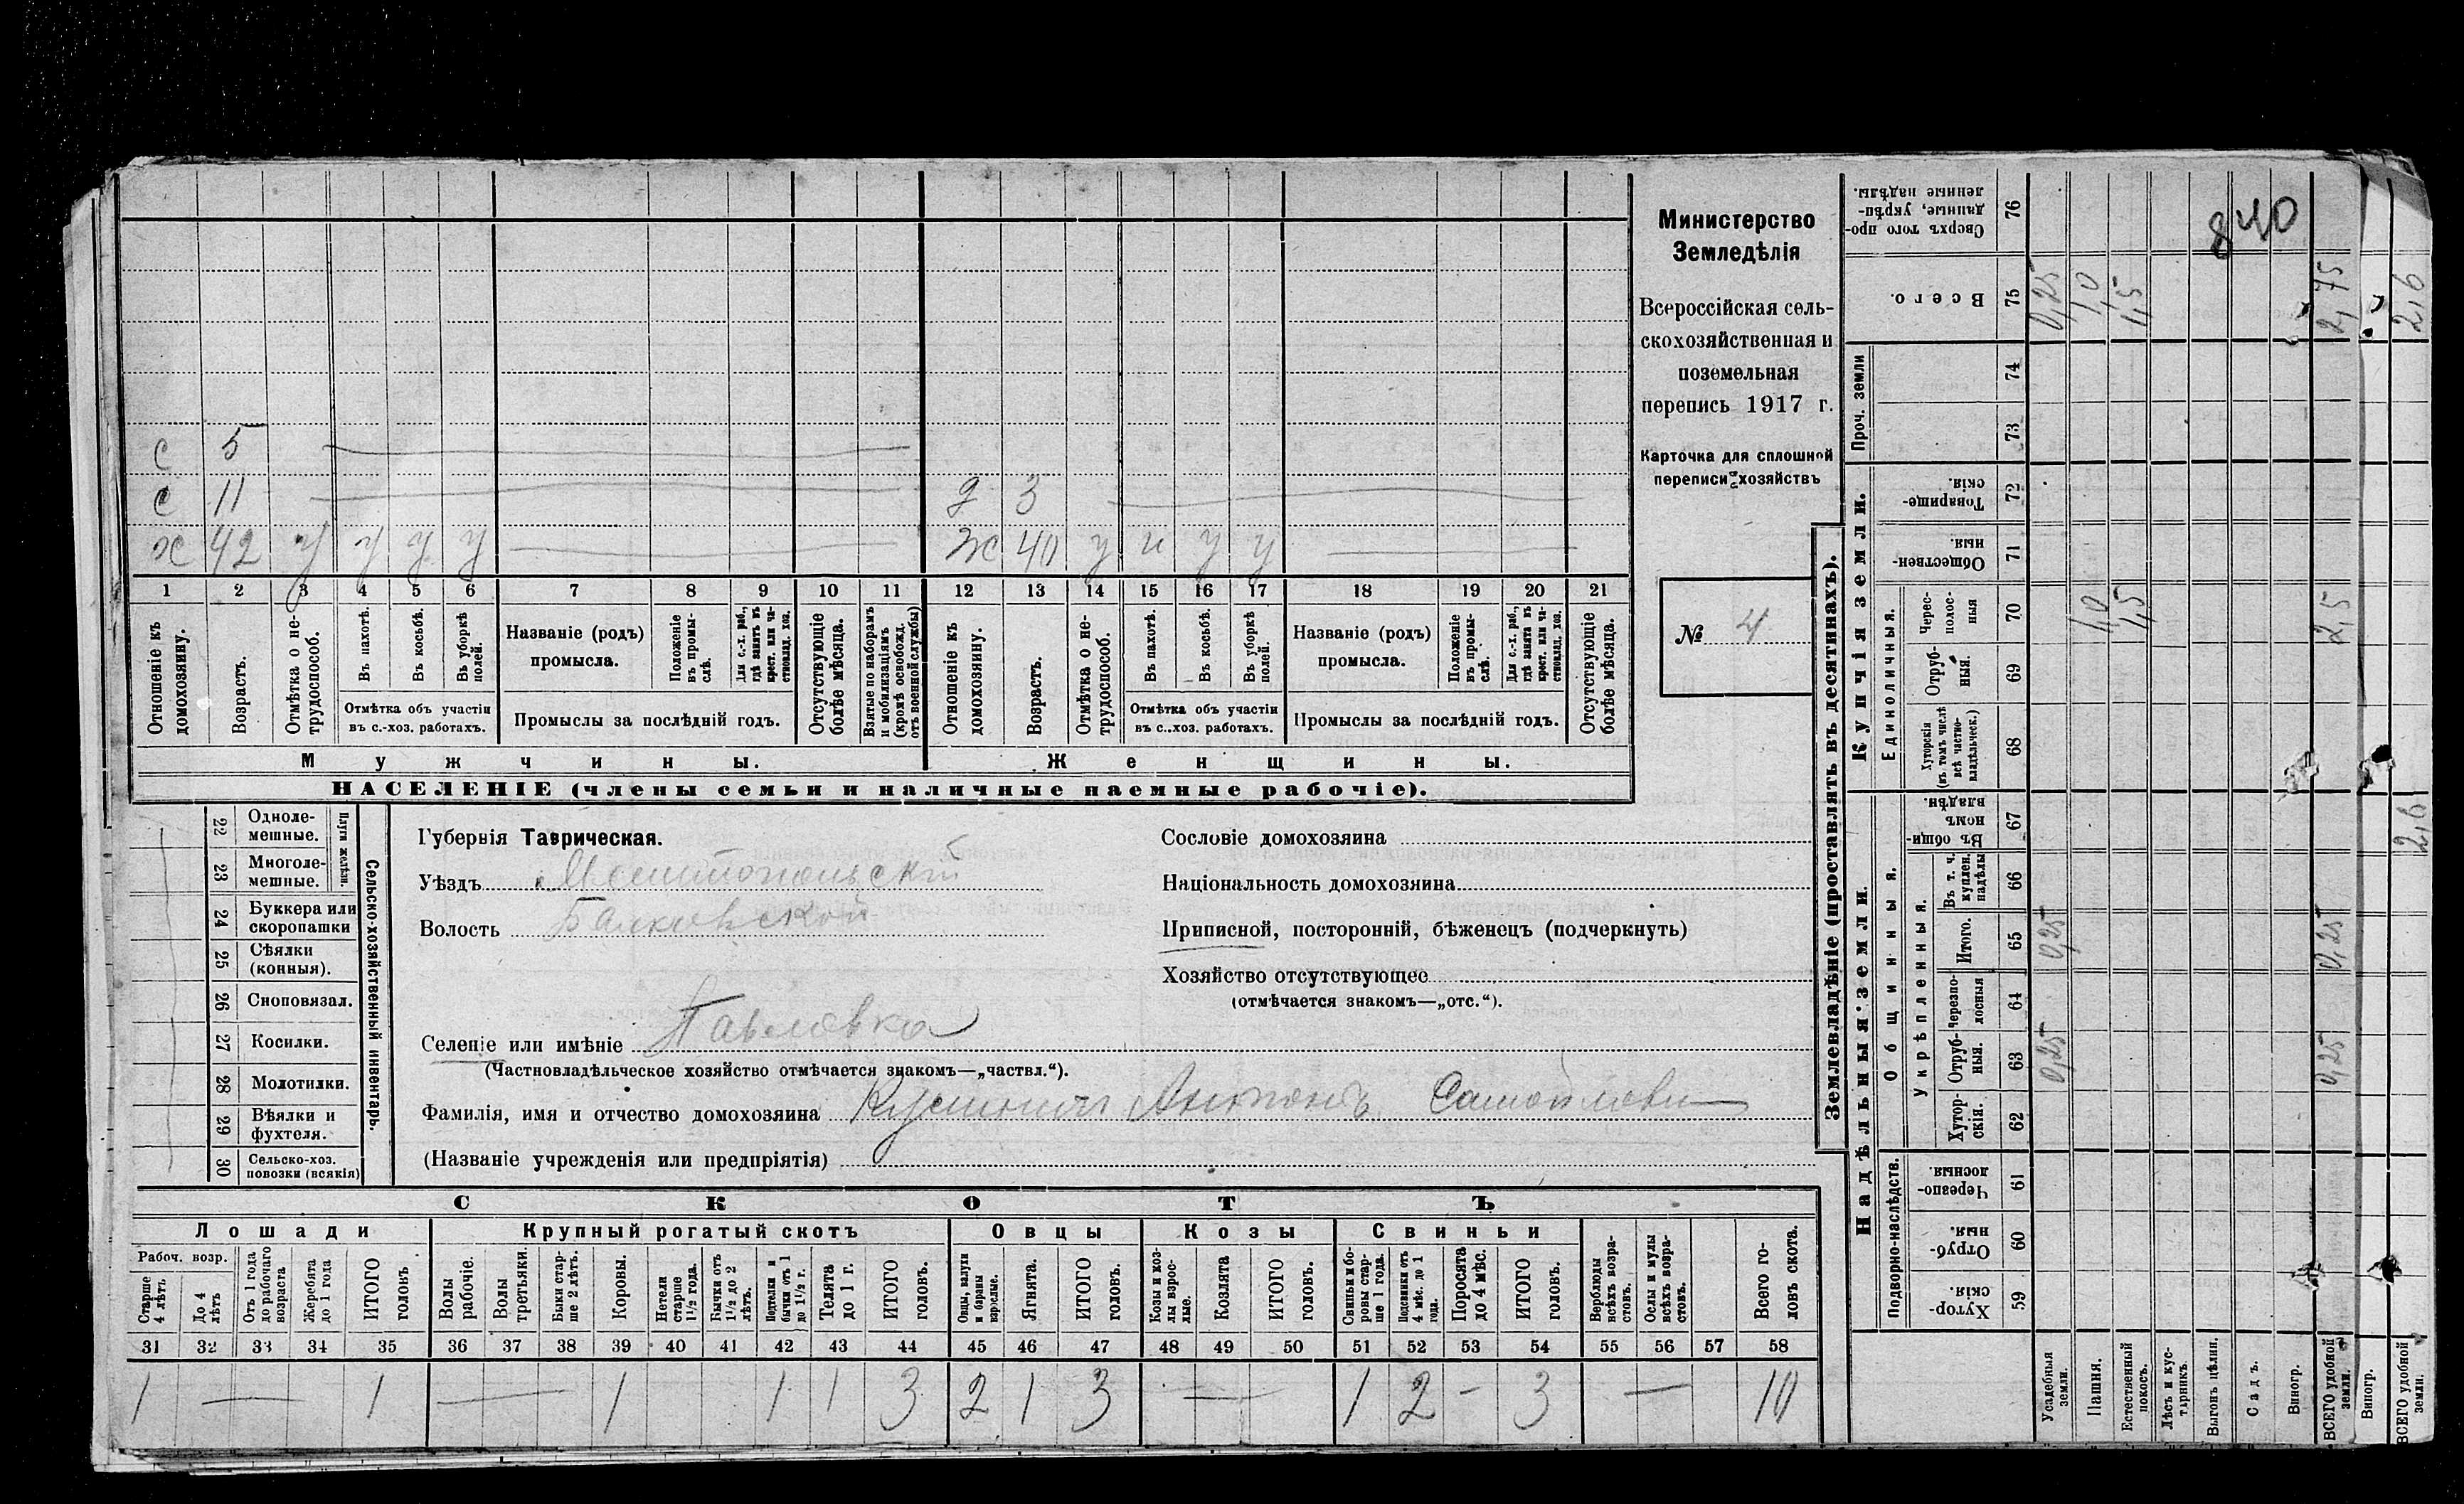 840
с 5
с 11 д 3
х 42 у у у у ж 40 у н у у
1 2 3 4 5 6 7 8 9 10 11 12 13 14 15 16 17 18 19 20 21
Отношеніе къ домохозяину.
Возрастъ.
Отмѣтка о не-трудоспособ.
Въ пахотѣ.
Въ косьбѣ.
Въ уборкѣ полей.
Отмѣтка объ участіи
въ с.-хоз. работахъ.
Названіе (родъ)
промысла.
Положеніе въ промы-слѣ.
Для с.-х. раб., гдѣ занятъ въ крест. или ча-стновлад. хоз.
Промыслы за послѣдній годъ.
Отсутствующіе болѣе мѣсяца.
Взятые по наборамъ и мобилизаціямъ (кромѣ освобожд. отъ военной службы)
Отношеніе къ домохозяину.
Возрастъ.
Отмѣтка о не-трудоспособ.
Въ пахотѣ.
Въ косьбѣ.
Въ уборкѣ полей.
Отмѣтка объ участіи
въ с..хоз. работахъ.
Названіе (родъ)
промысла.
Положеніе въ промы-слѣ.
Для с.-х. раб., гдѣ занята въ крест. или ча-стновлад. хоз.
Промыслы за послѣдній годъ.
Отсутствующіе болѣе мѣсяца.
Мужчины. Женщины.
НАСЕЛЕНІЕ (члены семьи и наличные наемные рабочіе).
Министерство
Земледѣлія
Всероссійская сель-
скохозяйственная и
поземельная
перепись 1917 г.
Карточка для сплошной
переписи хозяйствъ
№ 4
22 Одноле-мешные.
23 Многоле-мешные.
Плуги желѣзн.
24 Буккера или скоропашки
25 Сѣялки (конныя).
26 Сноповязал.
27 Косилки.
28 Молотилки.
29 Вѣялки и фухтеля.
30 Сельско-хоз. повозки (всякія)
Сельско-хозяйственный инвентарь.
Губернія Таврическая.
Уѣздъ Мелитопольскій
Волость Балковской
Селеніе или имѣніе Павловка
(Частновладѣльческое хозяйство отмѣчается знакомъ—„частвл.“).
Фамилія, имя и отчество домохозяина Антонъ Самойлови
(Названіе учрежденія или предпріятія)
Сословіе домохозяина
Національность домохозяина
Приписной, посторонній, бѣженецъ (подчеркнуть)
Хозяйство отсутствующее
(отмѣчается знакомъ—„отс.“).
СКОТЪ
Лошади Крупный рогатый скотъ Овцы Козы Свиньи
Рабоч. возр.
Старше 4 лѣтъ
До 4 лѣтъ
Отъ 1 года до рабочаго возраста
Жеребята до 1 года
ИТОГО головъ
Волы рабочіе.
Волы третьяки.
Быки стар-ше 2 лѣтъ.
Коровы.
Нетели старше 1½ года.
Бычки отъ 1½ до 2 лѣтъ.
Подтелки и бычки отъ 1 до 1½ г.
Телята до 1 г.
ИТОГО головъ.
Овцы, валухи и бараны взрослые.
Ягнята.
ИТОГО головъ.
Козы и коз-лы взрос-лые.
Козлята
ИТОГО головъ.
Свиньи и бо-ровы стар-ше 1 года.
Подсвинки отъ 4 мѣс. до 1 года.
Поросята до 4 мѣс.
ИТОГО головъ.
Верблюды всѣхъ возра-стовъ.
Ослы и мулы всѣхъ возра-стовъ.
Всего го-ловъ скота.
31 32 33 34 35 36 37 38 39 40 41 42 43 44 45 46 47 48 49 50 51 52 53 54 55 56 57 58
1 — 1 — 1 1 1 3 2 1 3 — 1 2 - 3 — 10
Землевладѣніе (проставлять въ десятинахъ).
Надѣльныя земли. Купчія земли. Проч. земли
Подворно-наслѣдств. Общинныя. Укрѣпленныя. Единоличныя.
59 Хутор-скія.
60 Отруб-ныя.
61 Черезпо-лосныя.
62 Хутор-скія.
63 Отруб-ныя. 0,25 0,25
64 Черезпо-лосныя
65 Итого. 0,25 0,25
66 Въ т. ч. куплен. надѣлы
67 Въ общи-номъ владѣн. 2,6
68 Хуторскія (въ томъ числѣ всѣ частно-владѣльческ.)
69 Отруб-ныя.
70 Черес-полос-ныя 1,0 1,5 2,5
71 Обществен-ныя.
72 Товарище-скія.
73
74
75 Всего. 0,25 1,0 1,5 2,75 2,6
76 Сверхъ того про-данные, укрѣп-ленные надѣлы.
Усадебныя земли.
Пашня.
Естественный покосъ.
Лѣсъ и кус-тарникъ.
Выгонъ цѣлин.
Садъ.
Виногр.
ВСЕГО удобной земли.
Виногр.
ВСЕГО удобной земли.